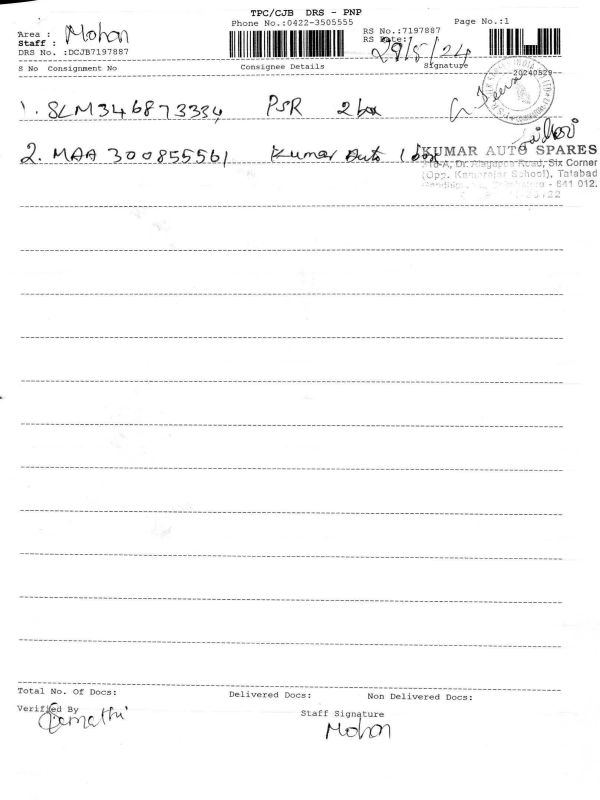 TPC/CJB DRS - PNP
Phone No.:0422-3505555
Page No.:1
Area :
Staff : Mohan
DRS No. :DCJB7197887
RS No.:7197887
RS Date: 29/5/24
S No Consignment No Consignee Details Signature
20240529
1. SLM346873334 PSR 2 box
2. MAA 300855561 Kumar Auto 1 box
KUMAR AUTO SPARES
Road, Six Corner
(Opp. Kamarajar School), Tatabad
- 641 012.
Total No. Of Docs: Delivered Docs: Non Delivered Docs:
Verified By
Staff Signature
Mohan